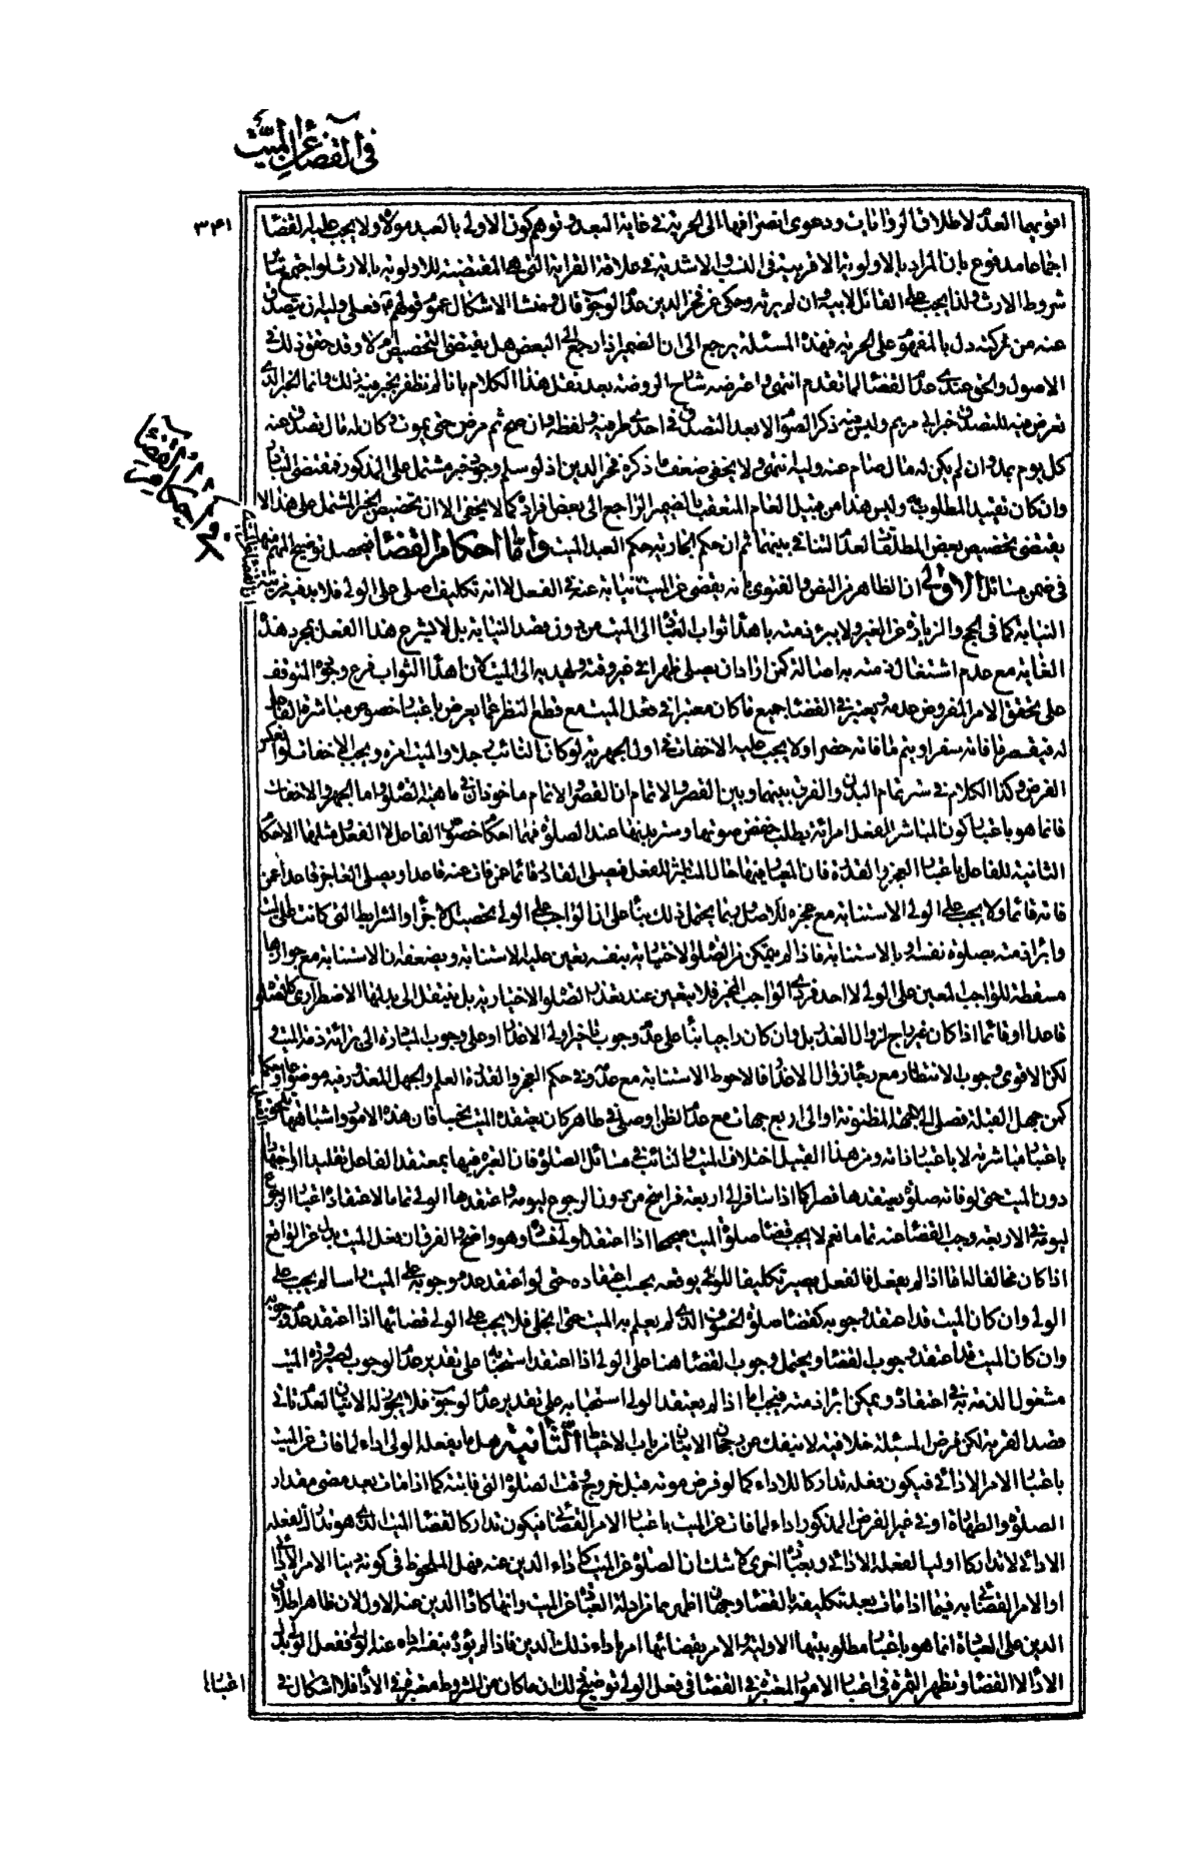 في القضاء عن الميت
٣٤١
اقويهما العدم لاطلاق الروايات ودعوى انصرافها الى الحرية في غاية البعد وتوهم كون الاولى بالعبد مولاه ولا يجب عليه القضاء
اجماعا مدفوع بان المراد بالاولوية الاقربية في النسب والاشدية في علاقة القرابة التي هي المقتضية للاولوية بالارث لو اجتمع سائر
شروط الارث ولذا يجب على القاتل لابيه وان لم يرثه وحكى عن فخر الدين عدم الوجوب قال ومنشأ الاشكال عموم قولهم فعلى وليه ان يتصدق
عنه من تركته دل بالمفهوم على الحرية فهذه المسئلة يرجع الى ان الضمير اذا رجع الى البعض هل يقتضي التخصيص ام لا وقد حقق ذلك في
الاصول والحق عندي عدم القضاء لما تقدم انتهى واعترضه شارح الروضة بعد نقل هذا الكلام بانا لم نظفر بخبر فيه ذلك وانما الخبر الذي
تعرض فيه للتصدق خبر ابي مريم وليس فيه ذكر الصوم الا بعد التصدق في احدى طرقيه ولفظه وان صح ثم مرض حتى يموت وكان له مال تصدق عنه
كل يوم بمد وان لم يكن له مال صام عنه وليه انتهى ولا يخفى ضعف ما ذكره فخر الدين اذ لو سلم وجود خبر مشتمل على المذكور فمقتضى القياس
وان كان تقييد المطلوب به وليس هذا من قبيل العام المتعقب بالضمير الراجع الى بعض افراده كما لا يخفى الا ان تخصيص الخبر المشتمل على هذا لا
يقتضي تخصيص بعض المطلقات لعدم التنافي بينهما ثم ان حكم الجارية حكم العبد الميت واما احكام القضاء فيحصل توضيح المهم منها
في احكام القضاء
في ضمن مسائل الاولى ان الظاهر من النص والفتوى بانه يقضي عن الميت نيابة عنه في الفعل لا انه تكليف اصلي على الولي فلا بد فيه من نية
النيابة كما في الحج والزيارة عن الغير ولا يبرء ذمته باهداء ثواب العبادة الى الميت من دون قصد النيابة بل لا يشرع هذا الفعل بمجرد هذه
الغاية مع عدم اشتغال ذمته به اصالة كمن اراد ان يصلي ظهرا في غير وقته وليهديه الى الميت لان اهداء الثواب فرع وجوده المتوقف
على تحقق الامر المفروض عدمه ويعتبر في القضاء جميع ما كان معتبرا في فعل الميت مع قطع النظر عما يعرض باعتبار خصوص مباشرة الفاعل
له فيقصر ما فاته سفرا ويتم ما فاته حضرا ولا يجب عليه الاخفات في اولى الجهرية لو كان النائب رجلا والميت امرءة ويجب الاخفات لو انعكس
الفرض وكذا الكلام في ستر تمام البدن والفرق بينهما وبين القصر والاتمام ان القصر والاتمام ماخوذان في ماهية الصلوة واما الجهر والاخفات
فانما هو باعتبار كون المباشر للفعل امرأة يطلب خفض صوتها وستر بدنها عند الصلوة فهما احكام خصوص الفاعل لا الفعل مثلهما الاحكام
الثانية للفاعل باعتبار العجز والقدرة فان المعيار فيها حال المباشر للفعل فيصلي القادر قائما عن من فات عنه قاعدا ويصلي العاجز قاعدا عمن
فاته قائما ولا يجب على الولي الاستنابة مع عجزه للاصل وربما يحتمل ذلك بناء على ان الواجب على الولي تحصيل الاجزاء والشرايط التي كانت على الميت
وابراء ذمته بصلوة نفسه او بالاستنابة فاذا لم يتمكن من الصلوة الاختيارية بنفسه تعين عليه الاستنابة ويضعفه ان الاستنابة مع جوازها
مسقطة للواجب المعين على الولي لا احد فردي الواجب المخير فلا يتعين عند تعذر الصلوة الاختيارية بل ينتقل الى بدلها الاضطراري كالصلوة
قاعدا او قائما اذا كان غير راج لزوال العذر بل وان كان راجيا بناء على عدم وجوب تاخير اولي الاعذار او على وجوب المبادرة الى براءة ذمة الميت و
لكن الاقوى وجوب الانتظار مع رجاء زوال الاعذار فالاحوط الاستنابة مع عدمه وفي حكم العجز والقدرة العلم والجهل المعذور فيه موضوعا وحكما
كمن جهل القبلة فصلى الى الجهة المظنونة او الى اربع جهات مع عدم الظن او صلى في طاهر كان يعتقده الميت نجسا فان هذه الامور واشباهها
باعتبار مباشرته لا باعتبار ذاته ومن هذا القبيل اختلاف الميت والنائب في مسائل الصلوة فان العبرة فيها بمعتقد الفاعل تقليدا او اجتهادا
دون الميت حتى لو فاته صلوة يعتقدها قصرا كما اذا سافر الى اربعة فراسخ من دون الرجوع ليومه واعتقدها الولي تماما لاعتقاده اعتبار الرجوع
ليومه في الاربعة وجب القضاء عنه تماما نعم لا يجب قضاء صلوة الميت صحيحا اذا اعتقد الولي فساده وهو واضح والفرق ان فعل الميت بدل عن الواقع
اذا كان مخالفا له اما اذا لم يفعل فالفعل يصير تكليفا للولي يوقعه بحسب اعتقاده حتى لو اعتقد عدم وجوبه على الميت راسا لم يجب على
الولي وان كان الميت قد اعتقد وجوبه كقضاء صلوة الخسوف الذي لم يعلم به الميت حتى انجلى فلا يجب على الولي قضائها اذا اعتقد عدم وجوبه
وان كان الميت قد اعتقد وجوب القضاء ويحتمل وجوب القضاء هنا على الولي اذا اعتقد استحبابه على تقدير عدم الوجوب لصيرورة الميت
مشغول الذمة به في اعتقاده ويمكن ابراء ذمته فيجب اما اذا لم يعتقد الولي استحبابه على تقدير عدم الوجوب فلا يجوز له الاتيان لعدم تاتي
قصد القربة لكن فرض المسئلة خلافية لا ينفك عن رجحان الاتيان من باب الاحتياط الثانية هل ما يفعله الولي اداء لما فات عن الميت
باعتبار الامر الادائي فيكون فعله تداركا للاداء كما لو فرض موته قبل خروج وقت الصلوة التي فاتته كما اذا مات بعد مضي مقدار
الصلوة والطهارة او في غير الفرض المذكور اداء لما فات عن الميت باعتبار الامر القضائي فيكون تداركا لقضاء الميت الذي هو تدارك لفعله
الادائي لا تداركا اوليا لفعله الادائي وبعبارة اخرى لا شك ان الصلوة عن الميت كاداء الدين عنه فهل الملحوظ في كونه دينا الامر الادائي
او الامر القضائي به فيما اذا مات بعد تكليفه بالقضاء وجهان اظهرهما من ادلة القضاء عن الميت وانها كاداء الدين عنه الاول لان ظاهر اطلاق
الدين على العبادة انما هو باعتبار مطلوبيتها الاولية والامر بقضائها امر باداء ذلك الدين فاذا لم يؤده بنفسه اداه عنه الولي ففعل الولي بدل
الاداء لا القضاء وتظهر الثمرة في اعتبار الامور المعتبرة في القضاء في فعل الولي توضيح ذلك ان ما كان من الشروط معتبرة في الاداء فلا اشكال في
اعتباره